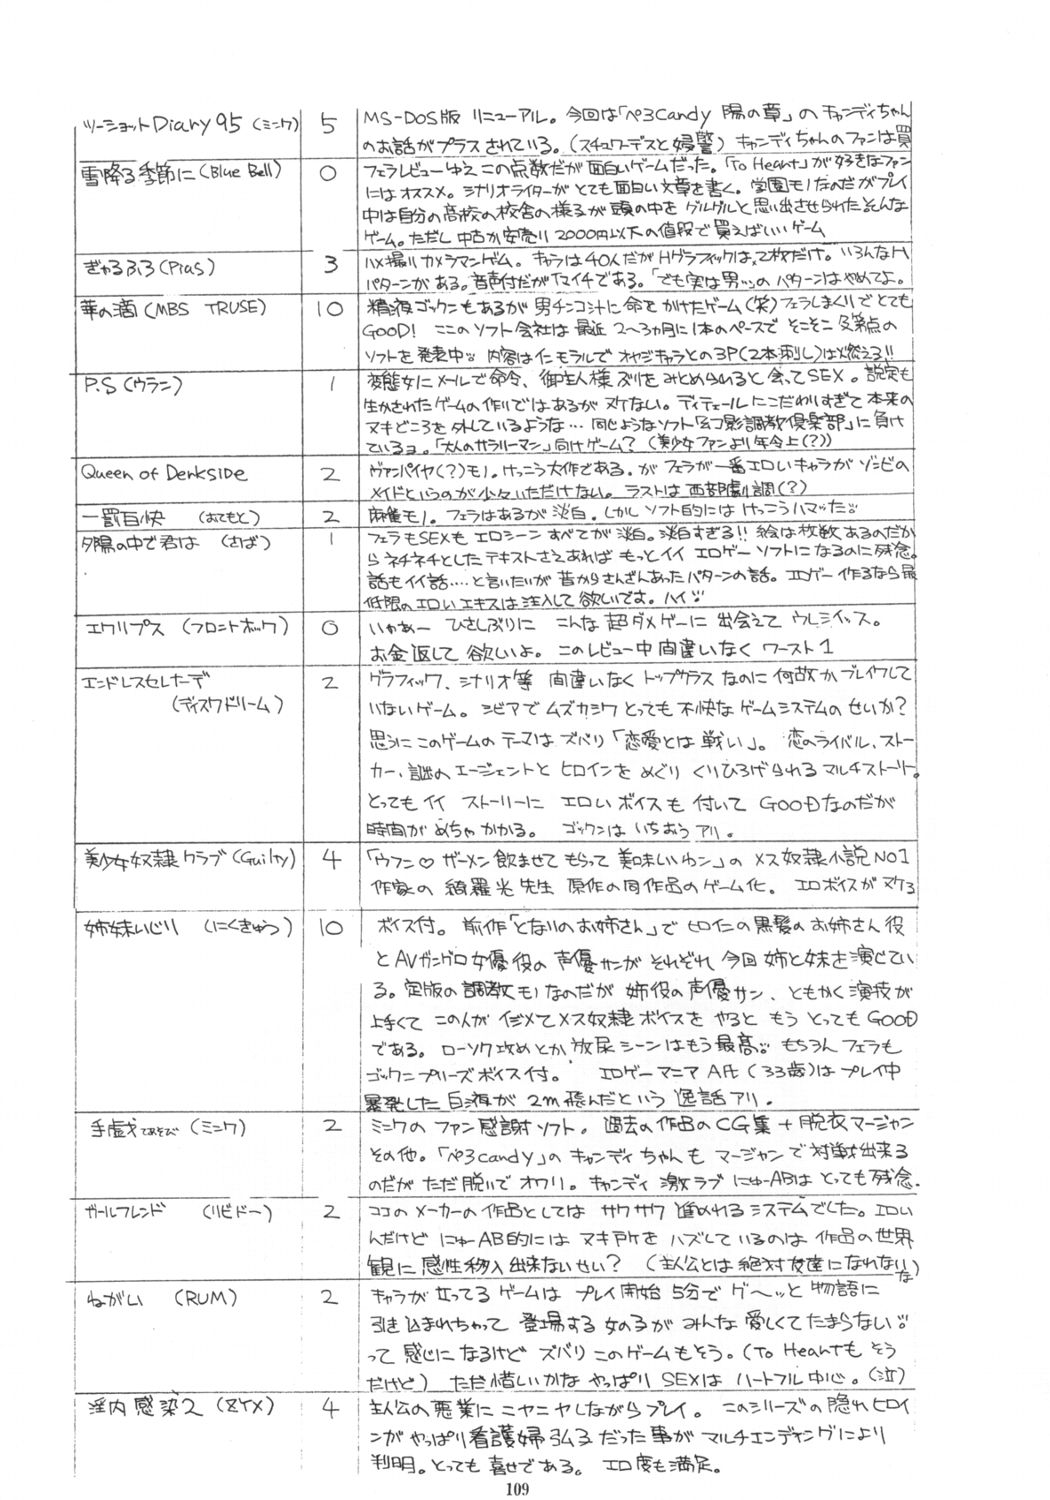 ツーショットDiary95（ミンク） 5 MS-DOS版 リニューアル。今回は「ぺろCandy 陽の章」のキャンディちゃん
のお話がプラスされている。（スチュワーデスと婦警） キャンディちゃんのファンは買
雪降る季節に（Blue Bell） 0 フェラレビューゆえこの点数だが面白いゲームだった。「To Heart」が好きなファン
にはオススメ。シナリオライターがとても面白い文章を書く。学園モノなのだがプレイ
中は自分の高校の校舎の様子が頭の中をグルグルと思い出させられたそんな
ゲーム。ただし中古か安売り2000円以下の値段で買えばいいゲーム
ぎゃるふろ（Pias） 3 ハメ撮りカメラマンゲーム。キャラは40人だがHグラフィックは、2枚だけ。いろんなH
パターンがある。音声付だがイマイチである。「でも実は男ッ」のパターンはやめてよ。
華の滴（MBS TRUSE） 10 精液ゴックンもあるが男チンコ汁に命をかけたゲーム（笑）フェラしまくりでとても
GOOD! ここのソフト会社は最近2〜3カ月に1本のペースでそこそこ及第点の
ソフトを発表中 内容はインモラルでオヤジキャラとの3P（2本刺し）は燃える!!
P.S（ウラン） 1 変態女にメールで命令、御主人様ぶりをみとめられると会ってSEX。設定も
生かされたゲームの作りではあるがヌケない。ディテールにこだわりすぎて本来の
ヌキどころを外しているような… 同じようなソフト「幻影調教倶楽部」に負け
ているョ。「大人のサラリーマン」向けゲーム？（美少女ファンより年令上(?)）
Queen of Derkside 2 ヴァンパイヤ(?)モノ。けっこう大作である。がフェラが一番エロいキャラがゾンビの
メイドというのが少々いただけない。ラストは西部劇調(?)
一罰百快 （おてもと） 2 麻雀モノ。フェラはあるが淡白。しかしソフト的にはけっこうハマッた
夕陽の中で君は （さば） 1 フェラもSEXもエロシーンすべてが淡白。淡白すぎる!!絵は枚数あるのだか
らネチネチとしたテキストさえあればもっとイイ エロゲーソフトになるのに残念。
話もイイ話‥‥と言いたいが昔からさんざんあったパターンの話。エロゲー作るなら最
低限のエロいエキスは注入して欲しいです。ハイ
エクリプス （フロントホック） 0 いやあー ひさしぶりに こんな超ダメゲーに出会えてウレシイッス。
お金返して欲しいよ。このレビュー中間違いなくワースト1
エンドレスセレナーデ 2 グラフィック、シナリオ等 間違いなくトップクラスなのに何故かブレイクして
（ディスクドリーム） いないゲーム。シビアでムズカシクとっても不快なゲームシステムのせいか？
思うにこのゲームのテーマはズバリ「恋愛とは戦い」。恋のライバル、ストー
カー、謎のエージェントとヒロインをめぐりくりひろげられるマルチストーリー。
とってもイイ ストーリーに エロいボイスも付いて GOODなのだが
時間がめちゃかかる。 ゴックンはいちおうアリ。
美少女奴隷クラブ（Guilty） 4 「ウフン♡ ザーメン飲ませてもらって美味しいわン」のメス奴隷小説NO1
作家の綺羅光先生原作の同作品のゲーム化。 エロボイスがヌケる
姉妹いじり （にくきゅう） 10 ボイス付。前作「となりのお姉さん」でヒロインの黒髪のお姉さん役
とAVガングロ女優役の声優サンがそれぞれ今回姉と妹を演じてい
る。定版の調教モノなのだが姉役の声優サン、ともかく演技が
上手くてこの人がイジメてメス奴隷ボイスをやるともうとってもGOOD
である。ローソク攻めとか放尿シーンはもう最高 もちろんフェラも
ゴックンプリーズボイス付。 エロゲーマニアA氏（33歳）はプレイ中
暴発した白液が2m飛んだという逸話アリ。
手戯てあそび（ミンク） 2 ミンクのファン感謝ソフト。過去の作品のCG集＋脱衣マージャン
その他。「ぺろcandy」のキャンディちゃんもマージャンで対戦出来る
のだがただ脱いでオワリ。キャンディ激ラブにゅーABはとっても残念。
ガールフレンド （リビドー） 2 ココのメーカーの作品としてはサクサク進めれるシステムでした。エロい
んだけどにゅーAB的にはヌキドコをハズしているのは作品の世界
観に感性移入出来ないせい？ （主人公とは絶対友達になれないな）
ねがい （RUM） 2 キャラが立ってるゲームはプレイ開始5分でグ〜ッと物語に
引き込まれちゃって登場する女の子がみんな愛しくてたまらない
って感じになるけどズバリこのゲームもそう。（To Heartもそう
だけど）ただ惜しいかなやっぱりSEXはハートフル中心。（泣）
淫内感染2（ZYX） 4 主人公の悪業にニヤニヤしながらプレイ。このシリーズの隠れヒロイ
ンがやっぱり看護婦弘子だった事がマルチエンディングにより
判明。とっても喜せである。エロ度も満足。
109